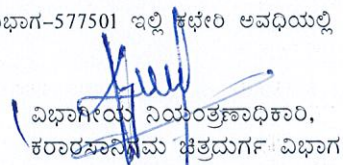 ಭಾಗ-577501 ಇಲ್ಲಿ ಕಛೇರಿ ಅವಧಿಯಲ್ಲಿ
ವಿಭಾಗೀಯ ನಿಯಂತ್ರಣಾಧಿಕಾರಿ,
ಕರಾರಸಾನಿಗಮ ಚಿತ್ರದುರ್ಗ ವಿಭಾಗ